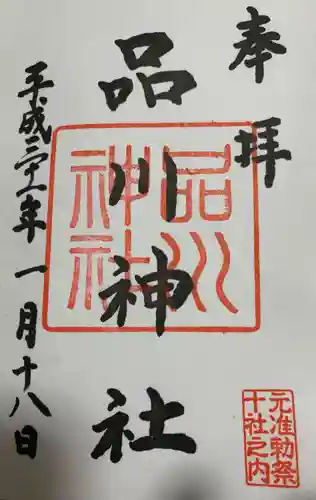 奉拝
品川神社
品川
神社
平成三十一年一月十八日
元准勅祭
十社之内